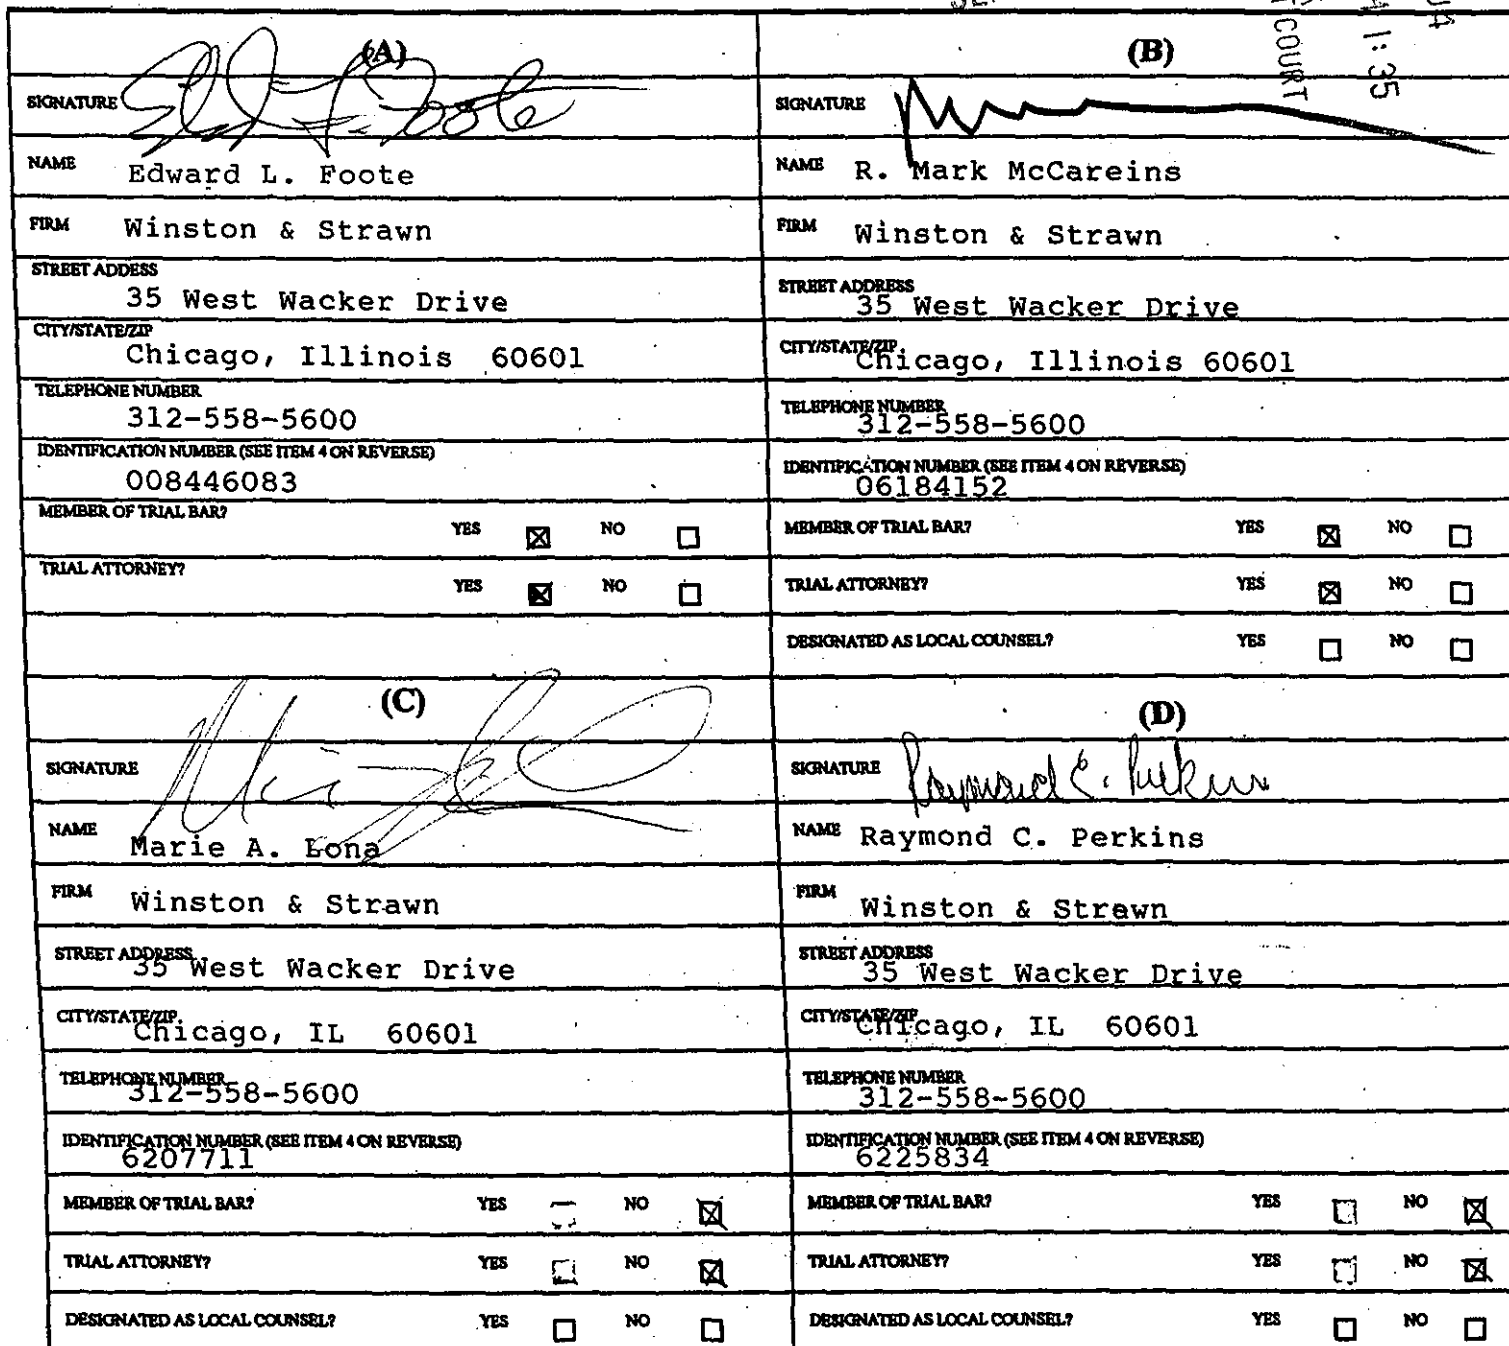 COURT
1:35
(A)
SIGNATURE Edward L. Foote
NAME Edward L. Foote
FIRM Winston & Strawn
STREET ADDESS
35 West Wacker Drive
CITY/STATE/ZIP
Chicago, Illinois 60601
TELEPHONE NUMBER
312-558-5600
IDENTIFICATION NUMBER (SEE ITEM 4 ON REVERSE)
008446083
MEMBER OF TRIAL BAR? YES ☒ NO ☐
TRIAL ATTORNEY? YES ☒ NO ☐
(B)
SIGNATURE
NAME R. Mark McCareins
FIRM Winston & Strawn
STREET ADDRESS
35 West Wacker Drive
CITY/STATE/ZIP
Chicago, Illinois 60601
TELEPHONE NUMBER
312-558-5600
IDENTIFICATION NUMBER (SEE ITEM 4 ON REVERSE)
06184152
MEMBER OF TRIAL BAR? YES ☒ NO ☐
TRIAL ATTORNEY? YES ☒ NO ☐
DESIGNATED AS LOCAL COUNSEL? YES ☐ NO ☐
(C)
SIGNATURE
NAME Marie A. Lona
FIRM Winston & Strawn
STREET ADDRESS
35 West Wacker Drive
CITY/STATE/ZIP
Chicago, IL 60601
TELEPHONE NUMBER
312-558-5600
IDENTIFICATION NUMBER (SEE ITEM 4 ON REVERSE)
6207711
MEMBER OF TRIAL BAR? YES ☐ NO ☒
TRIAL ATTORNEY? YES ☐ NO ☒
DESIGNATED AS LOCAL COUNSEL? YES ☐ NO ☐
(D)
SIGNATURE Raymond C. Perkins
NAME Raymond C. Perkins
FIRM Winston & Strawn
STREET ADDRESS
35 West Wacker Drive
CITY/STATE/ZIP
Chicago, IL 60601
TELEPHONE NUMBER
312-558-5600
IDENTIFICATION NUMBER (SEE ITEM 4 ON REVERSE)
6225834
MEMBER OF TRIAL BAR? YES ☐ NO ☒
TRIAL ATTORNEY? YES ☐ NO ☒
DESIGNATED AS LOCAL COUNSEL? YES ☐ NO ☐